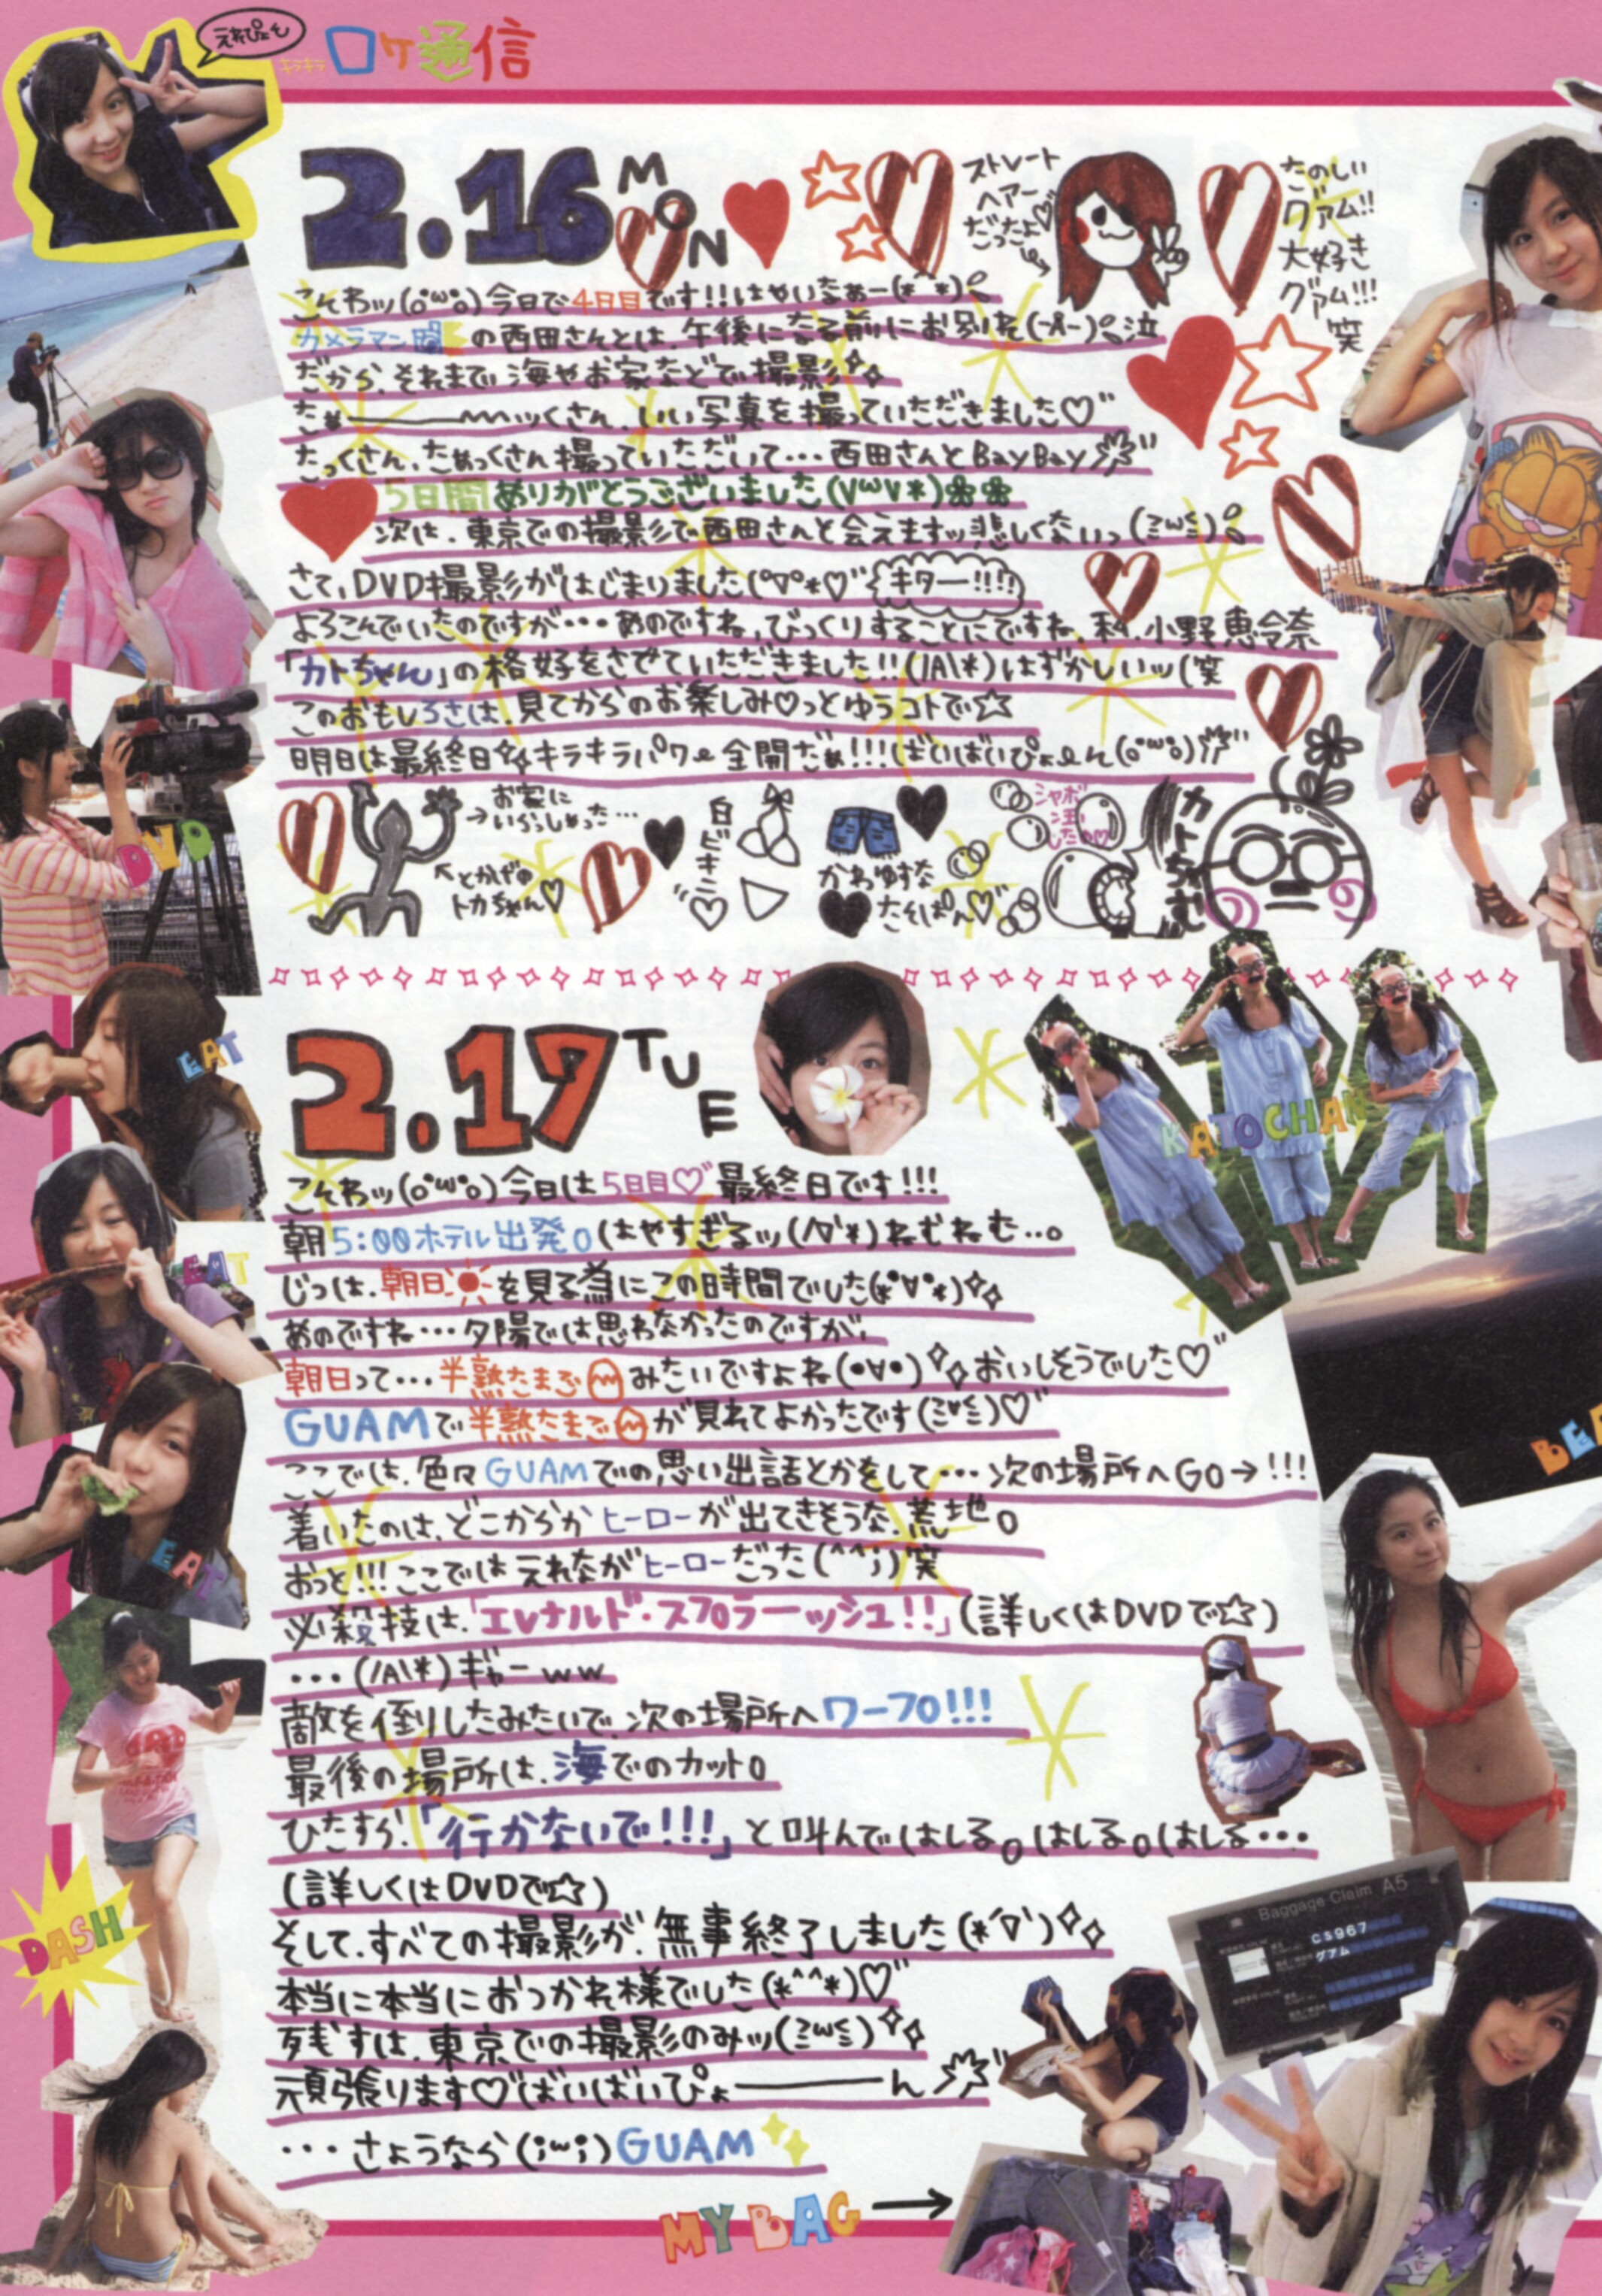 えれぴょん
キラキラ
ロケ通信
2.16 MON
ストレート
ヘアー
だったよ♡
たのしい
グァム!!
大好き
グァム!!!
笑
こんわッ(o°ω°o)今日で4日目です!!はやいなぁー(*^^*)。
カメラマンの西田さんとは、午後になる前にお別れ(ノД-)。泣
だから、それまで海やお家などで撮影
たぁ――ッくさん、いい写真を撮っていただきました♡"
たっくさん、たぁっくさん撮っていただいて…西田さんとBayBay
5日間ありがとうございました(VωV*)
次は、東京での撮影で西田さんと会えますッ悲しくないっ(ミωミ)。
さて、DVD撮影がはじまりました(°∇°*♡"キター!!!!
よろこんでいたのですが…あのですね、びっくりすることにですね、私、小野恵令奈
「カトちゃん」の格好をさせていただきました!!(/A\*)はずかしいッ(笑
このおもしろさは、見てからのお楽しみ♡っとゆうコトで☆
明日は最終日キラキラパワー全開だぁ!!!ばいばいぴょーん(o°ω°o)
→お家に
いらっしゃった…
↖とかげの
トカちゃん♡
白ビキニ
かわゆすな
たんぱん♡"
シャボン玉
したの♡
カトちゃむ
DVD
2.17 TUE
KATOCHAN
EAT
EAT
EAT
こんわッ(o°ω°o)今日は5日目♡"最終日です!!!
朝5:00ホテル出発。(はやすぎるッ(/∇\*)ねむねむ…。
じつは、朝日を見る為にこの時間でした(*°∀°*)
あのですね…夕陽では思わなかったのですが、
朝日って…半熟たまごみたいですよね(•∀•)おいしそうでした♡"
GUAMで半熟たまごが見れてよかったです(ミ∀ミ)♡"
ここでは、色々GUAMでの思い出話とかをして…次の場所へGO→!!!
着いたのは、どこからかヒーローが出てきそうな、荒地。
おっと!!!ここではえれながヒーローだった(^^;)笑
必殺技は、「エレナルド・スプラーッシュ!!」(詳しくはDVDで☆)
…(/A\*)ギャーww
敵を倒りしたみたいで、次の場所へワープ!!!
最後の場所は、海でのカット。
ひたすら、「行かないで!!!」と叫んではしる。はしる。はしる…
(詳しくはDVDで☆)
そして、すべての撮影が、無事終了しました(*´∇`)
本当に本当におつかれ様でした(*^^*)♡"
残すは、東京での撮影のみッ(ミωミ)
頑張ります♡"ばいばいぴょ―――ん
…さようなら(;ω;)GUAM
DASH
Baggage Claim A5
CS967
グアム
MY BAG →